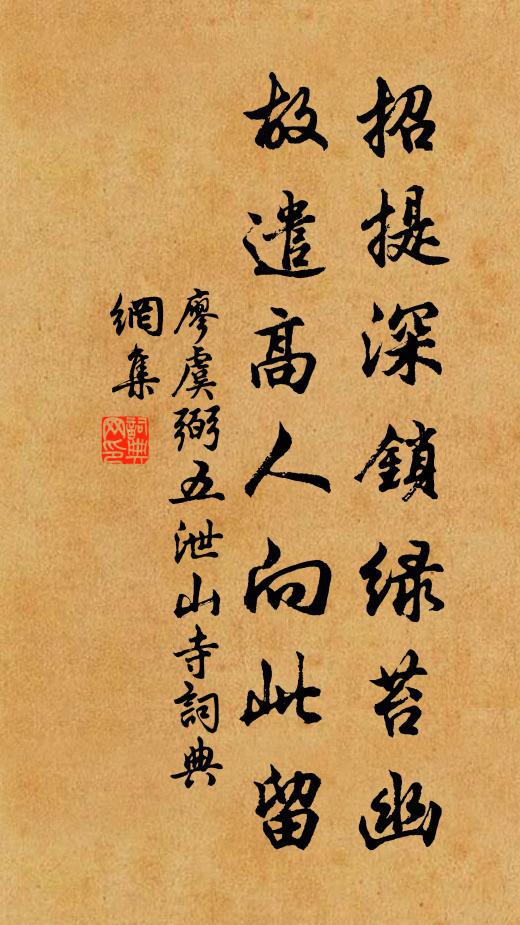 招提深鎖緑苔幽
故遣高人向此留
廖虞弼五泄山寺詞典
網集
詞典網印